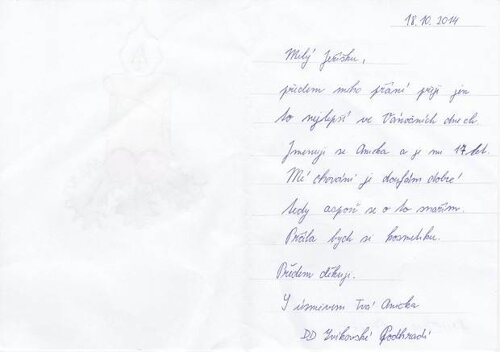 18.10.2014
Milý Ježíšku,
předem mého přání přeji jen
to nejlepší ve Vánočních dnech.
Jmenuji se Anička a je mi 17 let.
Mé chování je doufám dobré!
tedy aspoň se o to snažím.
Přála bych si kosmetiku.
Předem děkuji.
S úsměvem Tvá Anička
DD Zvíkovské Podhradí